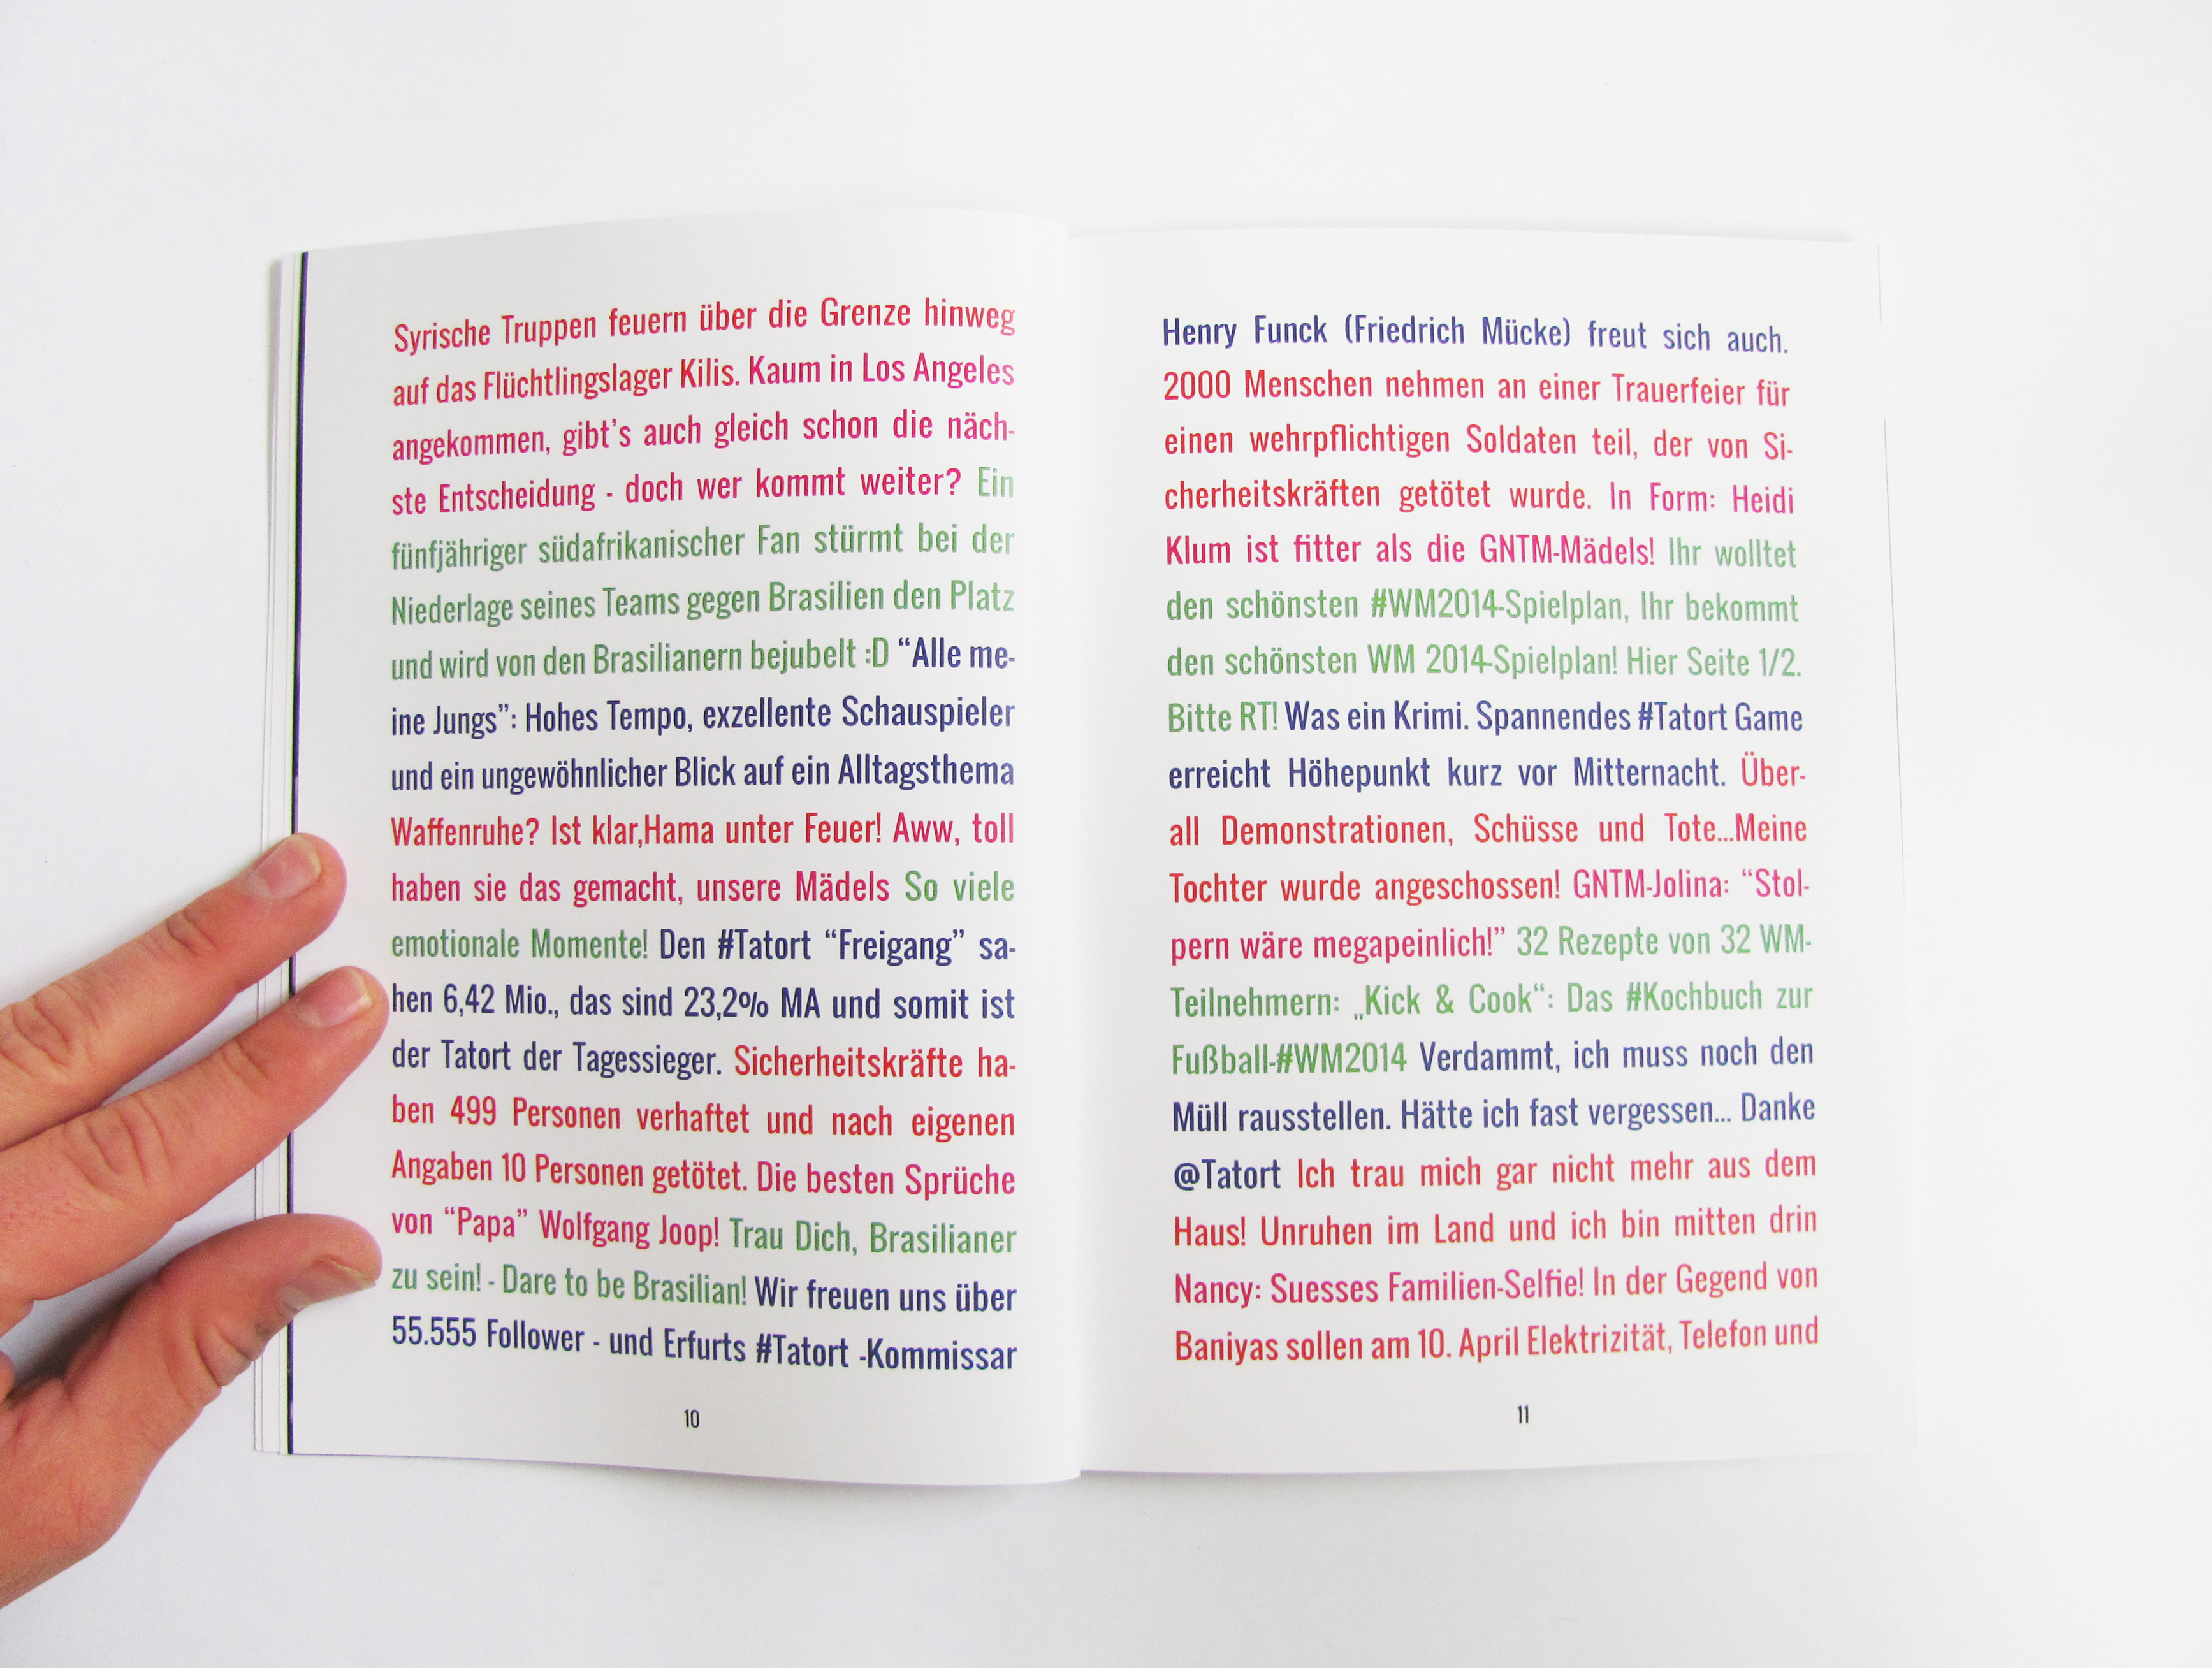 Syrische Truppen feuern über die Grenze hinweg
auf das Flüchtlingslager Kilis. Kaum in Los Angeles
angekommen, gibt's auch gleich schon die näch-
ste Entscheidung - doch wer kommt weiter? Ein
fünfjähriger südafrikanischer Fan stürmt bei der
Niederlage seines Teams gegen Brasilien den Platz
und wird von den Brasilianern bejubelt :D “Alle me-
ine Jungs”: Hohes Tempo, exzellente Schauspieler
und ein ungewöhnlicher Blick auf ein Alltagsthema
Waffenruhe? Ist klar,Hama unter Feuer! Aww, toll
haben sie das gemacht, unsere Mädels So viele
emotionale Momente! Den #Tatort “Freigang” sa-
hen 6,42 Mio., das sind 23,2% MA und somit ist
der Tatort der Tagessieger. Sicherheitskräfte ha-
ben 499 Personen verhaftet und nach eigenen
Angaben 10 Personen getötet. Die besten Sprüche
von “Papa” Wolfgang Joop! Trau Dich, Brasilianer
zu sein! - Dare to be Brasilian! Wir freuen uns über
55.555 Follower - und Erfurts #Tatort -Kommissar
10
Henry Funck (Friedrich Mücke) freut sich auch.
2000 Menschen nehmen an einer Trauerfeier für
einen wehrpflichtigen Soldaten teil, der von Si-
cherheitskräften getötet wurde. In Form: Heidi
Klum ist fitter als die GNTM-Mädels! Ihr wolltet
den schönsten #WM2014-Spielplan, Ihr bekommt
den schönsten WM 2014-Spielplan! Hier Seite 1/2.
Bitte RT! Was ein Krimi. Spannendes #Tatort Game
erreicht Höhepunkt kurz vor Mitternacht. Über-
all Demonstrationen, Schüsse und Tote...Meine
Tochter wurde angeschossen! GNTM-Jolina: “Stol-
pern wäre megapeinlich!” 32 Rezepte von 32 WM-
Teilnehmern: „Kick & Cook“: Das #Kochbuch zur
Fußball-#WM2014 Verdammt, ich muss noch den
Müll rausstellen. Hätte ich fast vergessen... Danke
@Tatort Ich trau mich gar nicht mehr aus dem
Haus! Unruhen im Land und ich bin mitten drin
Nancy: Suesses Familien-Selfie! In der Gegend von
Baniyas sollen am 10. April Elektrizität, Telefon und
11